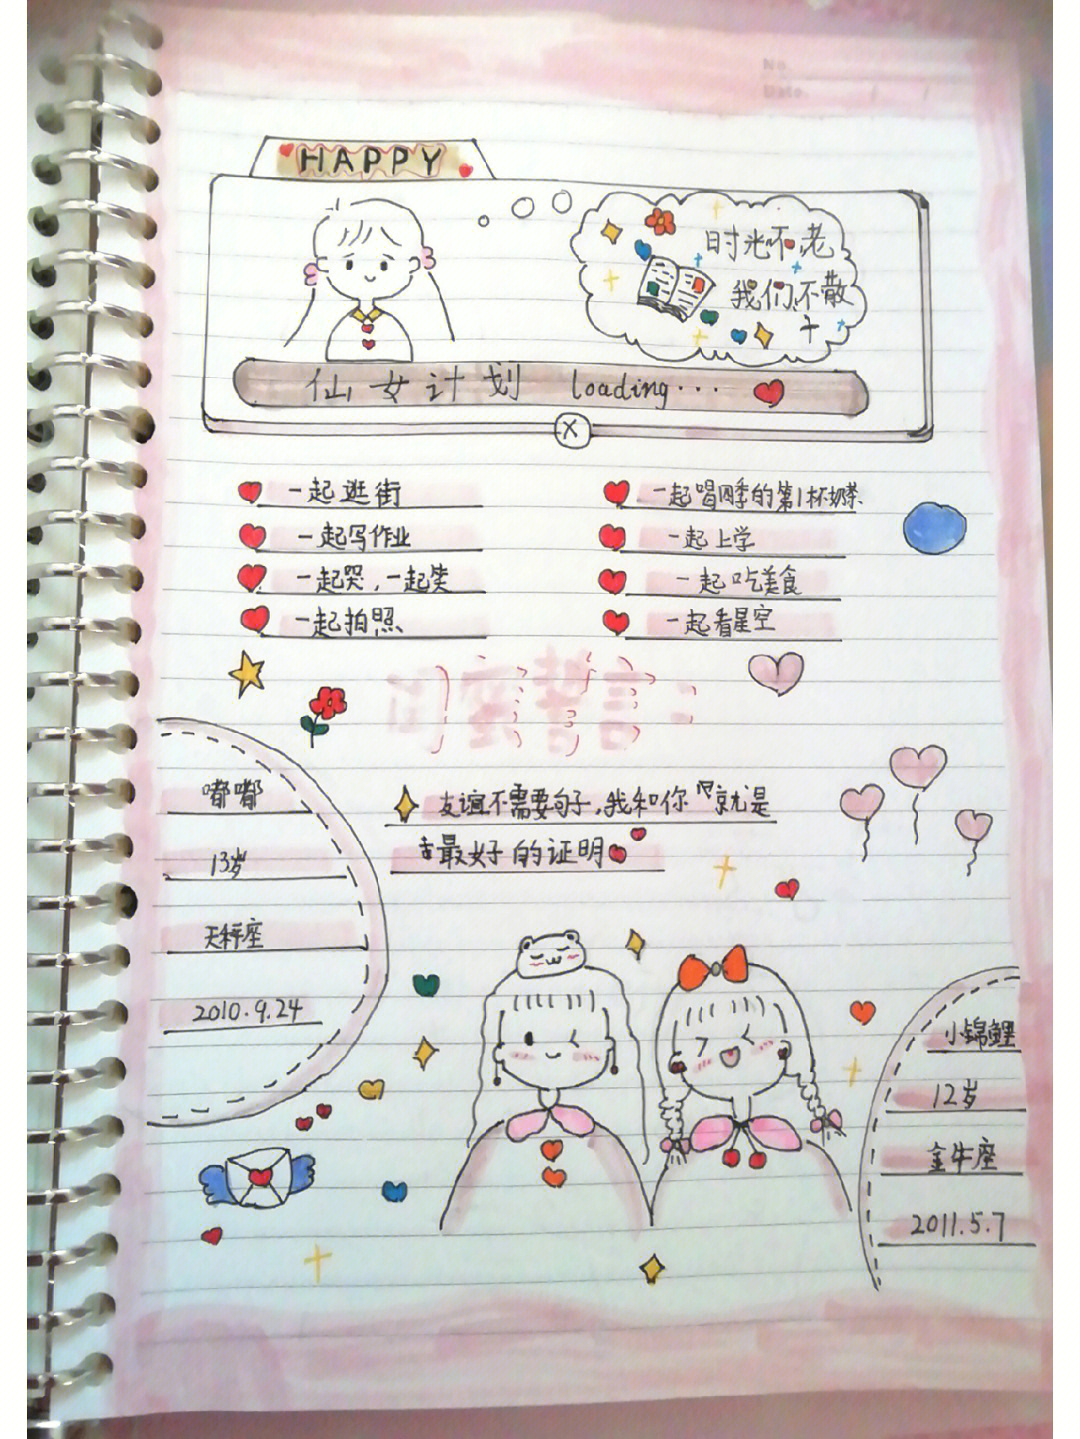 HAPPY
时光不老
我们不散
仙女计划 loading...
X
一起逛街
一起写作业
一起哭,一起笑
一起拍照
一起喝四季的第1杯奶茶
一起上学
一起吃美食
一起看星空
闺蜜誓言:
嘟嘟
13岁
天秤座
2010.9.24
友谊不需要句子,我和你就是
最好的证明
小锦鲤
12岁
金牛座
2011.5.7